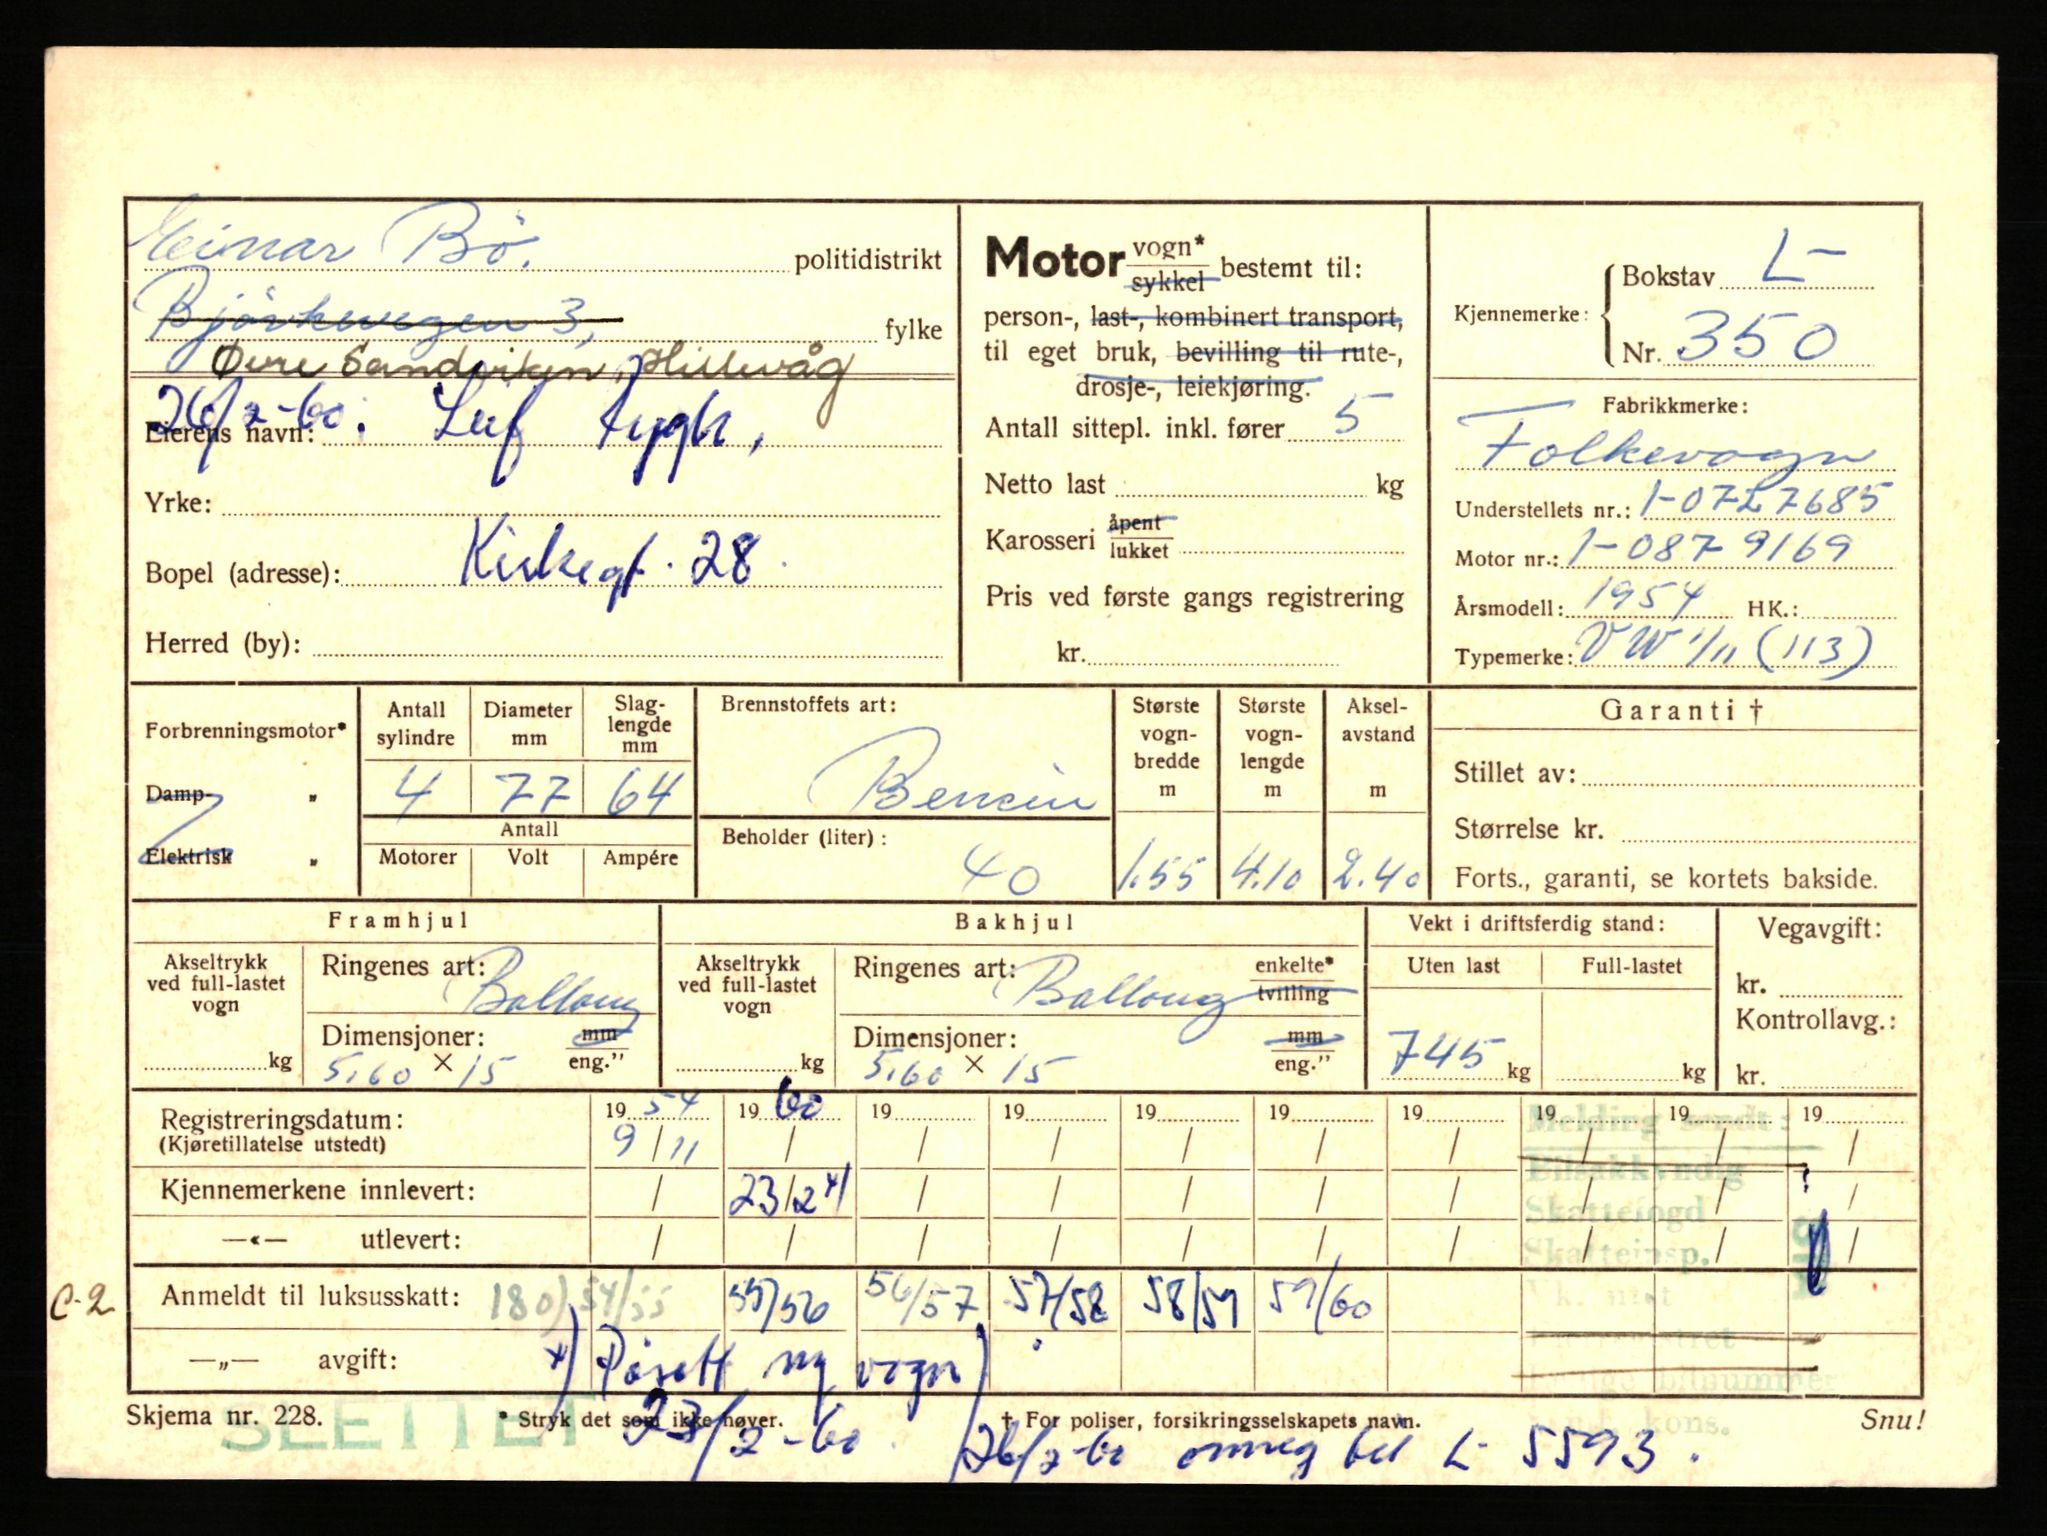 Einar Bö. politidistrikt
Bjørkevegen 3, fylke
Øvre Sandviken, Hillevåg
26/2-60. Leif Tygh,
Eierens navn:
Yrke:
Bopel (adresse): Kirkegt. 28.
Herred (by):
Motor vogn* sykkel bestemt til:
person-, last-, kombinert transport,
til eget bruk, bevilling til rute-,
drosje-, leiekjøring.
Antall sittepl. inkl. fører 5
Netto last kg
Karosseri åpent lukket
Pris ved første gangs registrering
kr.
Kjennemerke: Bokstav L-
Nr. 350
Fabrikkmerke:
Folkevogn
Understellets nr.: 1-0727685
Motor nr.: 1-0879169
Årsmodell: 1954 HK.:
Typemerke: VW 1/11 (113)
Forbrenningsmotor*
Damp- „
Elektrisk „
Antall sylindre Diameter mm Slaglengde mm
4 77 64
Antall
Motorer Volt Ampére
Brennstoffets art:
Bensin
Beholder (liter):
40
Største vognbredde m
1.55
Største vognlengde m
4.10
Akselavstand m
2.40
Garanti †
Stillet av:
Størrelse kr.
Forts., garanti, se kortets bakside.
Framhjul
Akseltrykk ved full-lastet vogn kg
Ringenes art: Ballong
Dimensjoner: mm eng."
5,60 × 15
Bakhjul
Akseltrykk ved full-lastet vogn kg
Ringenes art: Ballong enkelte* tvilling
Dimensjoner: mm eng."
5,60 × 15
Vekt i driftsferdig stand:
Uten last Full-lastet
745 kg kg
Vegavgift:
kr.
Kontrollavg.:
kr.
Registreringsdatum: 19 54 19 60 19 19 19 19 19 19 19 19
(Kjøretillatelse utstedt) 9/11 / / / / / / / / /
Kjennemerkene innlevert: / 23/2 x) / / / / / / / /
—«— utlevert: / / / / / / / / / /
Melding sendt:
Bilsakkyndig
Skattefogd
Skatteinsp.
C-2 Anmeldt til luksusskatt: 180) 54/55 55/56 56/57 57/58 58/59 59/60
—„— avgift: x) Påsatt ny vogn
Skjema nr. 228. * Stryk det som ikke høver. † For poliser, forsikringsselskapets navn. Snu!
SLETTET
23/2-60. 26/2-60 omreg til L- 5593.